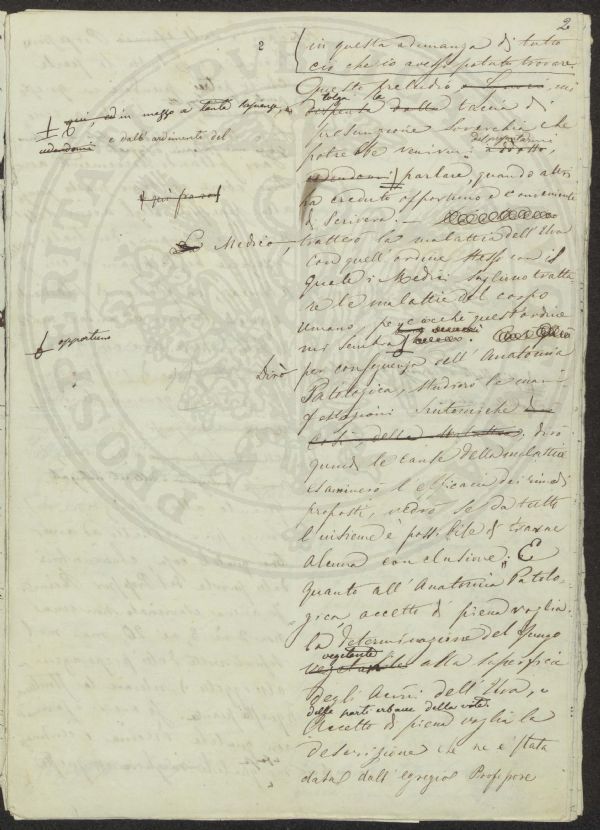 2
2
in questa adunanza di tutto
ciò che io avessi potuto trovare
Questo preludio, mi
tolga la
dispensa dalla taccia di
presunzione soverchia che
potrebbe venirmi
addotto,
parlare, quando altri
ha creduto opportuno e conveniente
di scrivere. —
ed in mezzo a tante
e dall'ardimento del
Medico, tratterò la malattia dell'Uva
con quell'ordine stesso con il
quale i Medici sogliono tratta
re le malattie del corpo
umano, perocchè quest'ordine
mi sembra
opportuno
Dirò per conseguenza dell'Anatomia
Patologica, studierò le mani
festazioni sintomiche
della malattia. dirò
quindi le cause della malattia
esaminerò l'efficacia dei rimedi
proposti, vedrò se da tutto
l'insieme è possibile di trarne
alcuna conclusione. E
quanto all'Anatomia Patolo-
gica, accetto di piena voglia
la determinazione del fungo
vegetante
alla superficie
degli Acini dell'Uva, e
delle parti erbacee della vite.
Accetto di piena voglia la
descrizione che ne è stata
data dall'egregio Professore